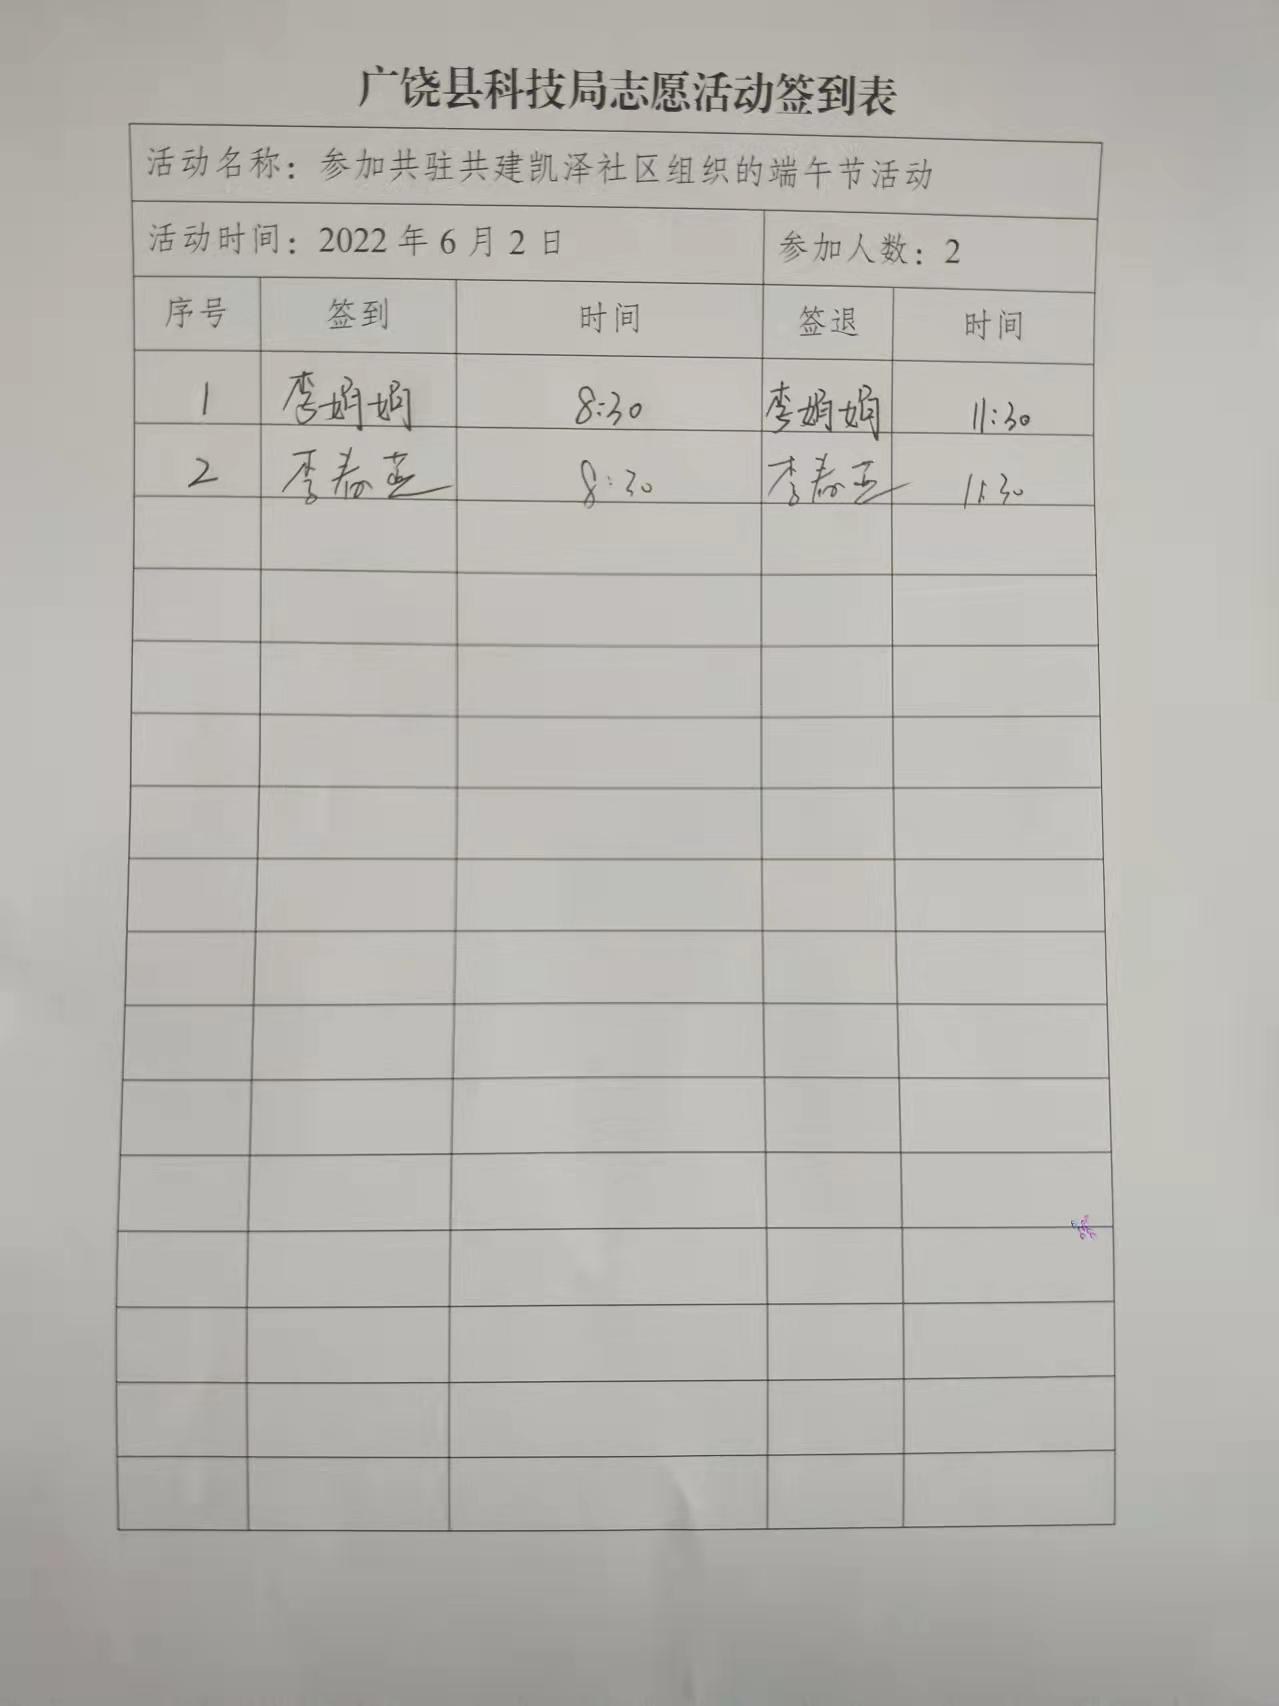 广饶县科技局志愿活动签到表
活动名称：参加共驻共建凯泽社区组织的端午节活动
活动时间：2022 年 6 月 2 日 参加人数：2
序号 签到 时间 签退 时间
1 李娟娟 8:30 李娟娟 11:30
2 李春 8:30 李春 11:30